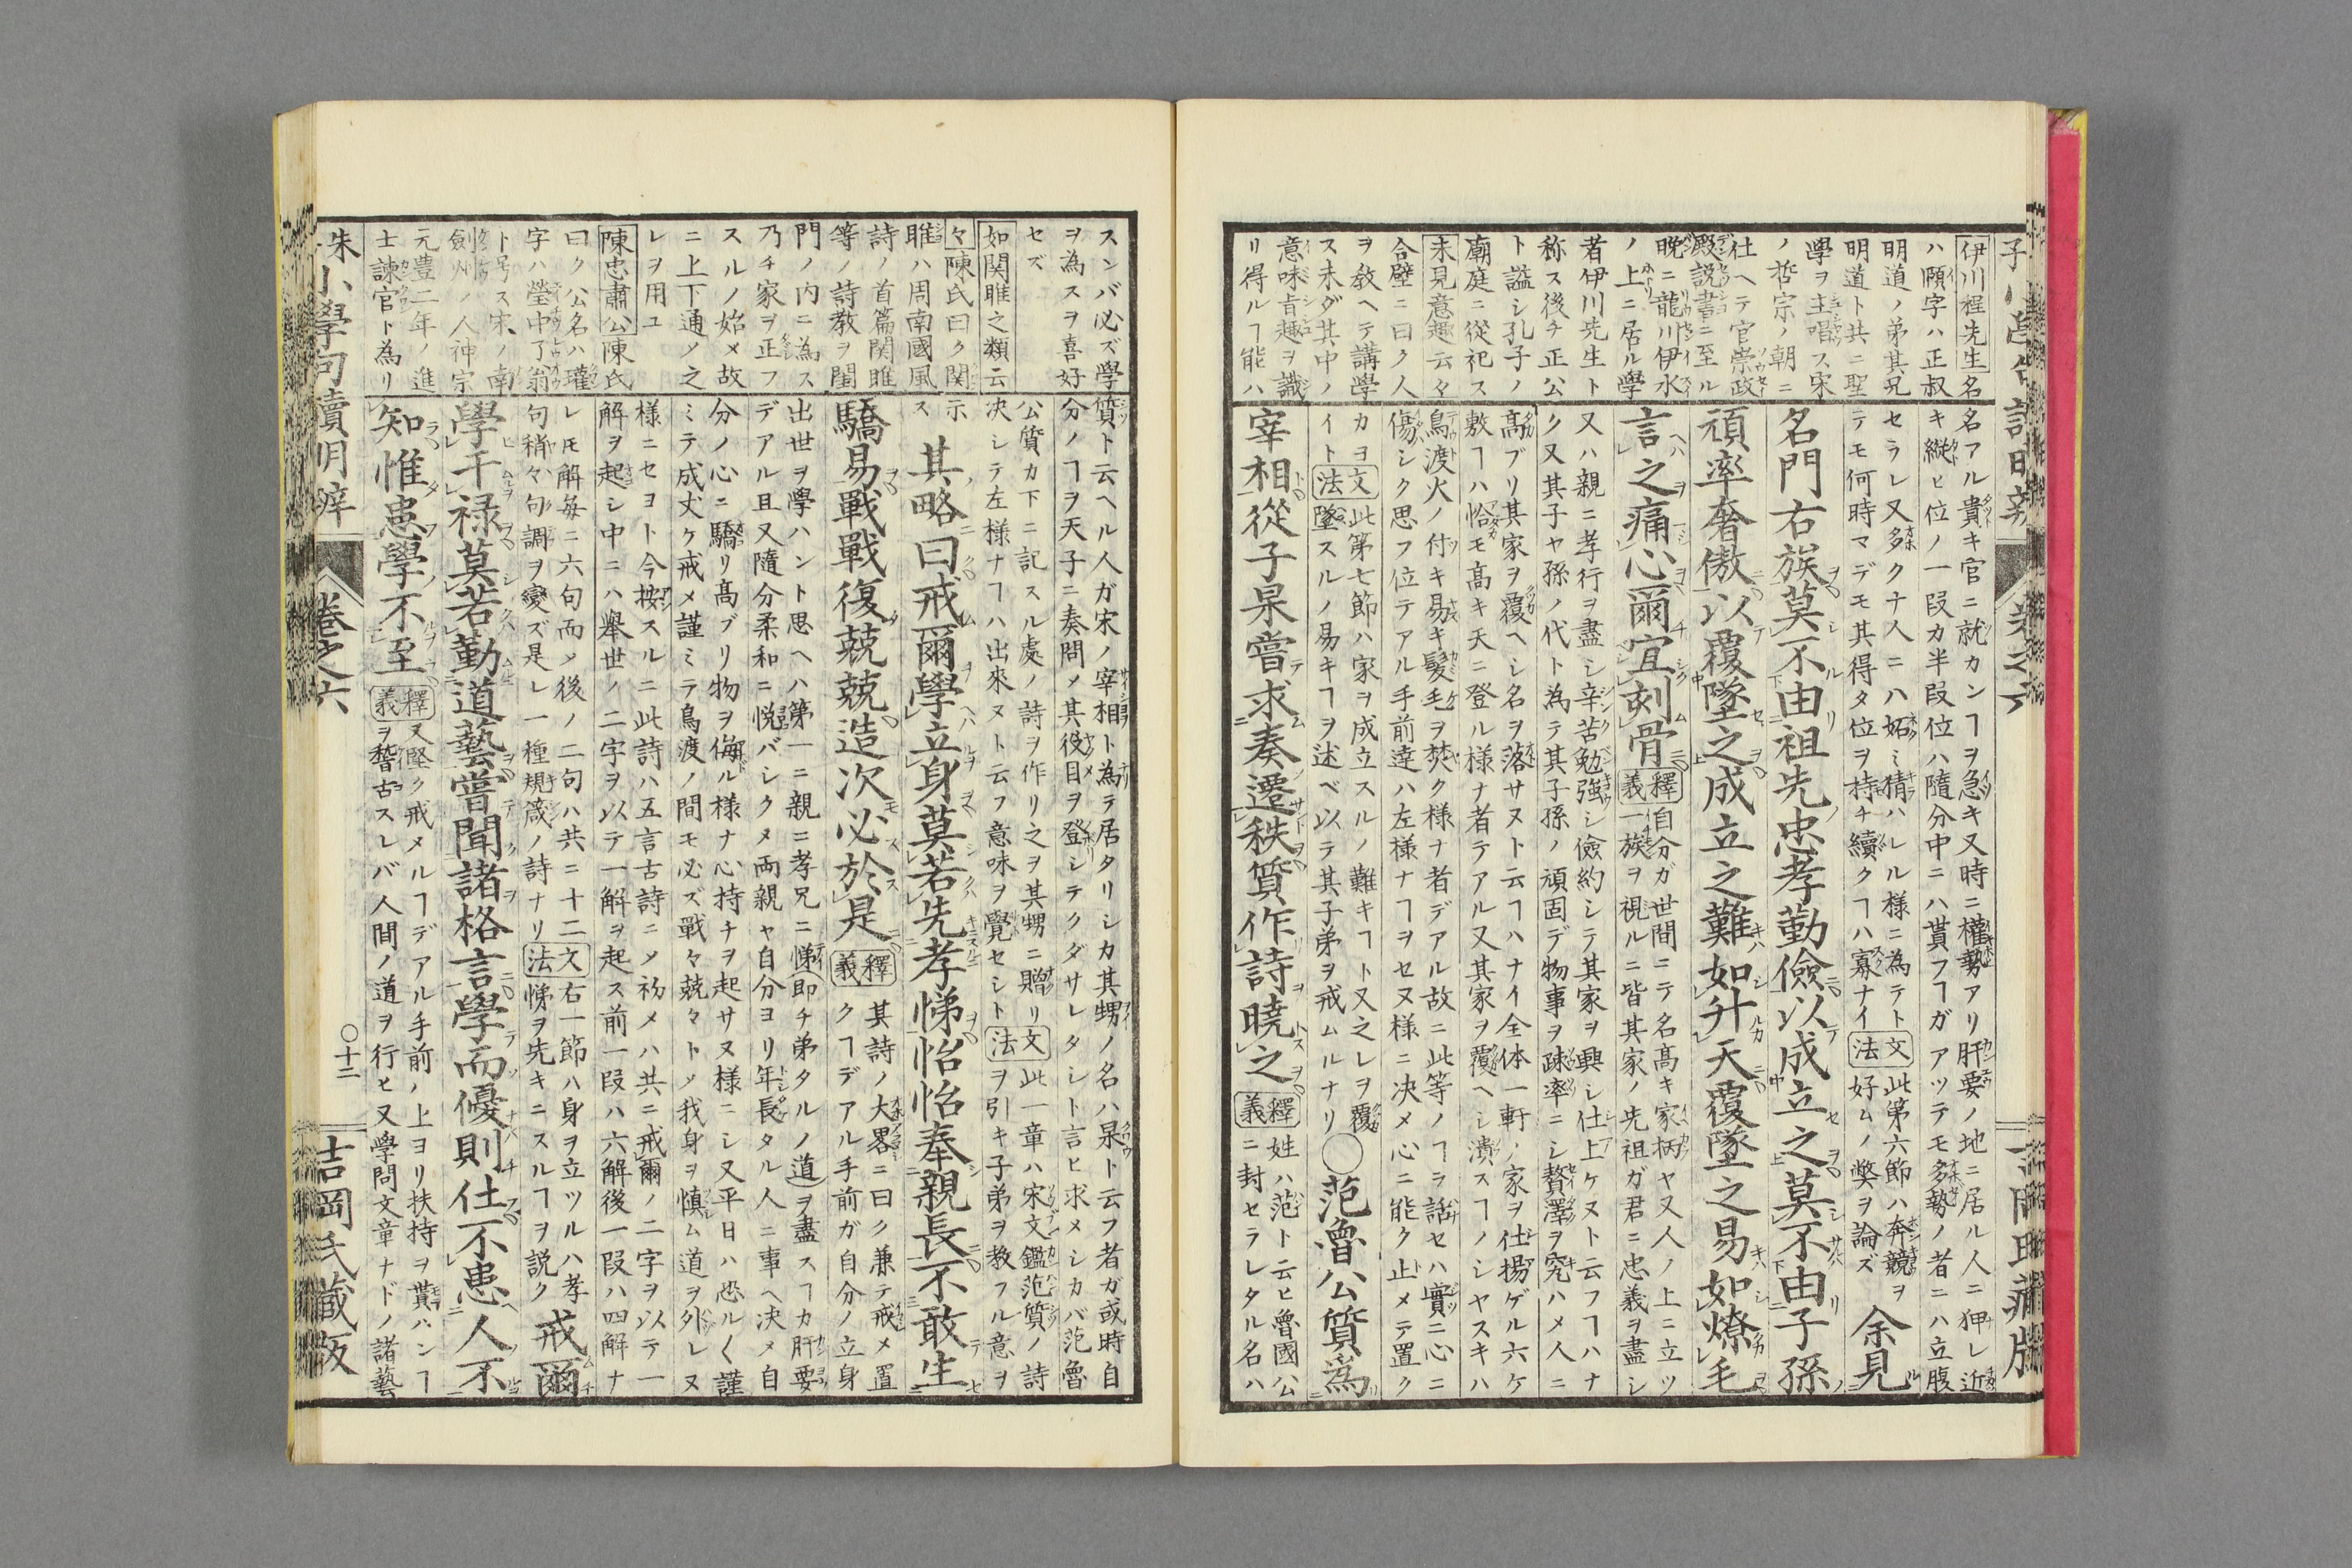 伊川程先生名
ハ頤字ハ正叔
明道ノ弟其兄
明道ト共ニ聖
學ヲ主唱ス宋
ノ哲宗ノ朝ニ
仕ヘテ官崇政
殿説書ニ至ル
晩ニ龍川伊水
ノ上ニ居ル學
者伊川先生ト
称ス後チ正公
ト謚シ孔子ノ
廟庭ニ從祀ス
未見意趣云々
合壁ニ曰ク人
ヲ教ヘテ講學
ス未ダ其中ノ
意味旨趣ヲ識
リ得ルヿ能ハ
名アル貴キ官ニ就カンヿヲ急キ又時ニ權勢アリ肝要ノ地ニ居ル人ニ狎レ近
キ縦ヒ位ノ一段カ半段位ハ隨分中ニハ貰フヿガアツテモ多勢ノ者ニハ立腹
セラレ又多クナ人ニハ妬ミ猜ハレル様ニ為テト
テモ何時マデモ其得タ位ヲ持チ續クヿハ寡ナイ
文法
此第六節ハ奔競ヲ
好ムノ弊ヲ論ズ
余見
名門右族莫不由祖先忠孝勤儉以成立之莫不由子孫
頑率奢傲以覆墜之成立之難如升天覆墜之易如燎毛
言之痛心爾宜刻骨
釋義
自分ガ世間ニテ名高キ家柄ヤ又人ノ上ニ立ツ
一族ヲ視ルニ皆其家ノ先祖ガ君ニ忠義ヲ盡シ
又ハ親ニ孝行ヲ盡シ辛苦勉強シ儉約シテ其家ヲ興シ仕上ケヌト云フヿハナ
ク又其子ヤ孫ノ代ト為テ其子孫ノ頑固デ物事ヲ疎率ニシ贅澤ヲ究ハメ人ニ
高ブリ其家ヲ覆ヘシ名ヲ落サヌト云ヿハナイ全体一軒ノ家ヲ仕揚ゲル六ケ
敷ヿハ恰モ高キ天ニ登ル様ナ者テアル又其家ヲ覆ヘシ潰スヿノシヤスキハ
鳥渡火ノ付キ易キ髪毛ヲ焚ク様ナ者デアル故ニ此等ノヿヲ話セハ實ニ心ニ
傷シク思フ位テアル手前達ハ左様ナヿヲセヌ様ニ决メ心ニ能ク止メテ置ク
カヨ
イト
文法
此第七節ハ家ヲ成立スルノ難キヿト又之レヲ覆
墜スルノ易キヿヲ述ベ以テ其子弟ヲ戒ムルナリ
○范魯公質為
宰相從子杲嘗求奏遷秩質作詩曉之
釋義
姓ハ范ト云ヒ魯國公
ニ封セラレタル名ハ
スンバ必ズ學
ヲ為スヲ喜好
セズ
如関雎之類云
々陳氏曰ク関
雎ハ周南國風
詩ノ首篇関雎
等ノ詩教ヲ閨
門ノ内ニ為ス
乃チ家ヲ正フ
スルノ始メ故
ニ上下通ノ之
レヲ用ユ
陳忠肅公陳氏
曰ク公名ハ瓘
字ハ瑩中了翁
ト号ス宋ノ南
劔州ノ人神宗
元豊二年ノ進
士諫官ト為リ
質ト云ヘル人ガ宋ノ宰相ト為テ居タリシカ其甥ノ名ハ杲ト云フ者ガ或時自
分ノヿヲ天子ニ奏問メ其役目ヲ登シテクダサレタシト言ヒ求メシカバ范魯
公質カ下ニ記スル處ノ詩ヲ作リ之ヲ其甥ニ贈リ
决シテ左様ナヿハ出來ヌト云フ意味ヲ覺セシト
文法
此一章ハ宋文鑑范質ノ詩
ヲ引キ子弟ヲ教フル意ヲ
示ス
其略曰戒爾學立身莫若先孝悌怡怡奉親長不敢生
驕易戰戰復兢兢造次必於是
釋義
其詩ノ大畧ニ曰ク兼テ戒メ置
クヿデアル手前ガ自分ノ立身
出世ヲ學ハント思ヘハ第一ニ親ニ孝兄ニ悌即チ弟タルノ道ヲ盡スヿカ肝要
デアル且又隨分柔和ニ悦バシクメ両親ヤ自分ヨリ年長タル人ニ事ヘ决メ自
分ノ心ニ驕リ高ブリ物ヲ侮ル様ナ心持チヲ起サヌ様ニシ又平日ハ恐ル〱謹
ミテ成丈ケ戒メ謹ミテ鳥渡ノ間モ必ズ戰々兢々トメ我身ヲ慎ム道ヲ外レヌ
様ニセヨト今按スルニ此詩ハ五言古詩ニメ初メハ共ニ戒爾ノ二字ヲ以テ一
解ヲ起シ中ニハ舉世ノ二字ヲ以テ一解ヲ起ス前一段ハ六解後一段ハ四解ナ
レ𪜈解毎ニ六句而メ後ノ二句ハ共ニ十二
句稍々句調ヲ變ズ是レ一種規箴ノ詩ナリ
文法
右一節ハ身ヲ立ツルハ孝
悌ヲ先キニスルヿヲ説ク
戒爾
學干禄莫若勤道藝嘗聞諸格言學而優則仕不患人不
知惟患學不至
釋義
又堅ク戒メルヿデアル手前ノ上ヨリ扶持ヲ貰ハンヿ
ヲ稽古スレバ人間ノ道ヲ行ヒ又學問文章ナドノ諸藝
朱
小學句讀明辨
卷之六
○十二
吉岡氏藏版